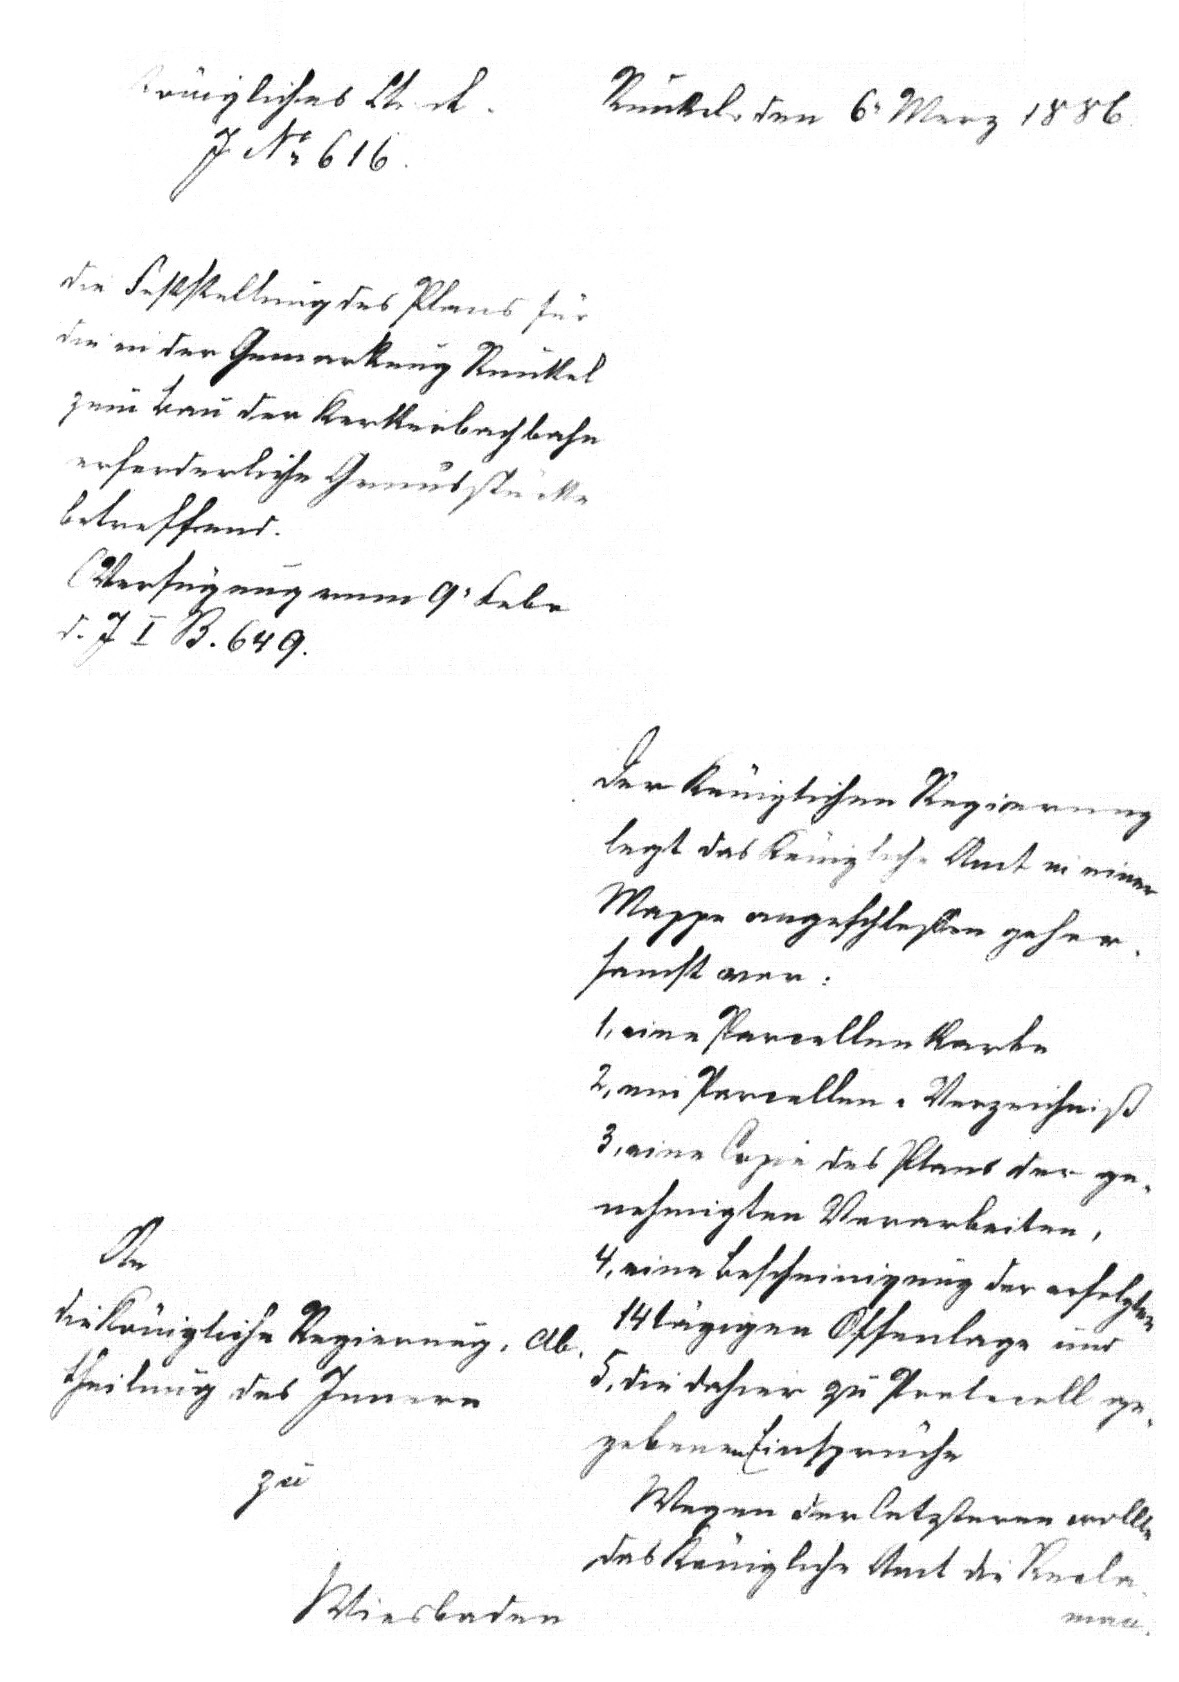 Königliches Amt.
Runkel, den 6. Merz 1886.
J No 616.
die Feststellung des Plans für
die in der Gemarkung Runkel
zum Bau der Kerkerbachbahn
erforderliche Grundstücke
betreffend.
(Verfügung vom 9. Febr
d. J I B. 649.
Der Königlichen Regierung
legt das Königliche Amt in einer
Mappe angeschlossen gehor-
samst vor:
1, eine Parcellen Karte
2, ein Parcellen-Verzeichniß
3, eine Copie des Plans der ge-
nehmigten Vorarbeiten,
4, eine Bescheinigung der erfolgten
14 tägigen Offenlage und
5, die dahier zu Protocoll ge-
gebenen Einsprüche
Wegen der letzteren wollte
das Königliche Amt die Recla-
man-
An
die Königliche Regierung, Ab-
theilung des Innern
zu
Wiesbaden